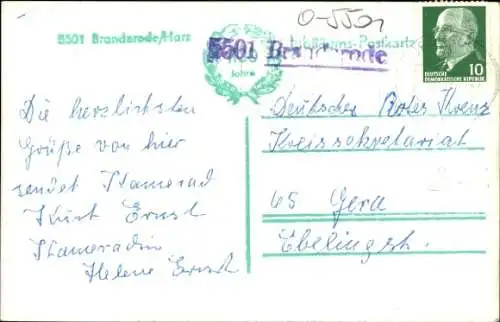 5501 Branderode/Harz
0-5501
Jubiläums-Postkarte
5501 Branderode
Jahre
10
DEUTSCHE
DEMOKRATISCHE REPUBLIK
Die herzlichsten
Grüße von hier
sendet Kamerad
Kurt Ernst
Kameradin
Helene Ernst
Deutsches Rotes Kreuz
Kreissekretariat
65 Gera
Ebelingstr.